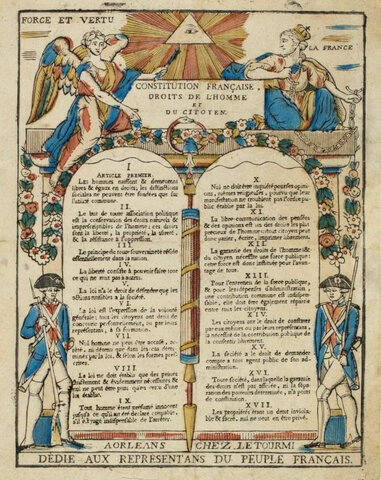 FORCE ET VERTU
LA FRANCE
CONSTITUTION FRANÇAISE,
DROITS DE L'HOMME
ET
DU CITOYEN.
I
ARTICLE PREMIER.
Les hommes naissent & demeurent
libres & égaux en droits; les distinctions
sociales ne peuvent être fondées que sur
l'utilité commune.
II.
Le but de toute association politique
est la conservation des droits naturels &
imprescriptibles de l'homme; ces droits
sont la liberté, la propriété, la sûreté,
& la résistance à l'oppression.
III.
Le principe de toute souveraineté réside
essentiellement dans la nation.
IV.
La liberté consiste à pouvoir faire tout
ce qui ne nuit pas à autrui.
V.
La loi n'a le droit de défendre que les
actions nuisibles à la société.
VI.
La loi est l'expression de la volonté
générale; tous les citoyens ont droit de
concourir personnellement, ou par leurs
représentans, à sa formation.
VII.
Nul homme ne peut être accusé, ar-
rêté, ni détenu que dans les cas déter-
minés par la loi, & selon les formes pres-
crites.
VIII.
La loi ne doit établir que des peines
strictement & évidemment nécessaires &
nul ne peut être puni qu'en vertu d'une
loi.
IX.
Tout homme étant présumé innocent
jusqu'à ce qu'il ait été déclaré coupable,
s'il est jugé indispensable de l'arrêter.
X.
Nul ne doit être inquiété pour ses opini-
ons, mêmes religieuses, pourvu que leur
manifestation ne troublent pas l'ordre pu-
blic établie par la loi.
XI.
La libre communication des pensées
& des opinions est un des droits les plus
précieux de l'homme; tout citoyen peut
donc parler, écrire, imprimer librement.
XII.
La garantie des droits de l'homme &
du citoyen nécessite une force publique;
cette force est donc instituée pour l'avan-
tage de tous.
XIII.
Pour l'entretien de la force publique,
& pour les dépenses d'administration,
une contribution commune est indispen-
sable, elle doit être également répartie
entre tous les citoyens.
XIV.
Les citoyens ont le droit de constater
par eux-mêmes ou par leurs représentans,
la nécessité de la contribution publique de
la consentir librement.
XV.
La société a le droit de demander
compte à tout agent public de son ad-
ministration.
XVI.
Toute société, dans laquelle la garantie
des droits n'est pas assurée, ni la sépara-
tion des pouvoirs déterminée, n'a point de
constitution.
XVII.
Les propriétés étant un droit inviola-
ble & sacré, nul ne peut en être privé.
A ORLEANS CHEZ LETOURMI
DÉDIÉ AUX REPRESENTANS DU PEUPLE FRANÇAIS.